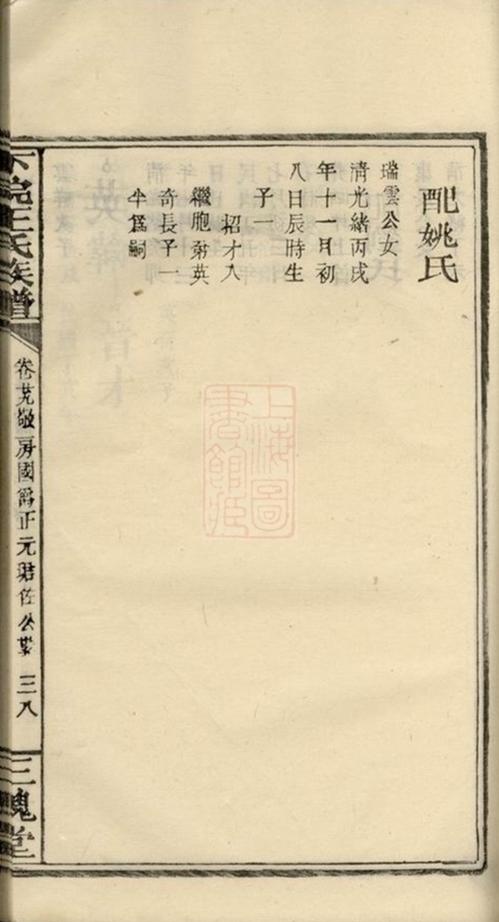 配姚氏
瑞雲公女
清光緒丙戌
年十一月初
八日辰時生
子一
招才入
繼胞弟英
奇長子一
半爲嗣
王氏族譜
敬房國爵正元珺佐公業 三八
三槐堂
上海圖
書館藏